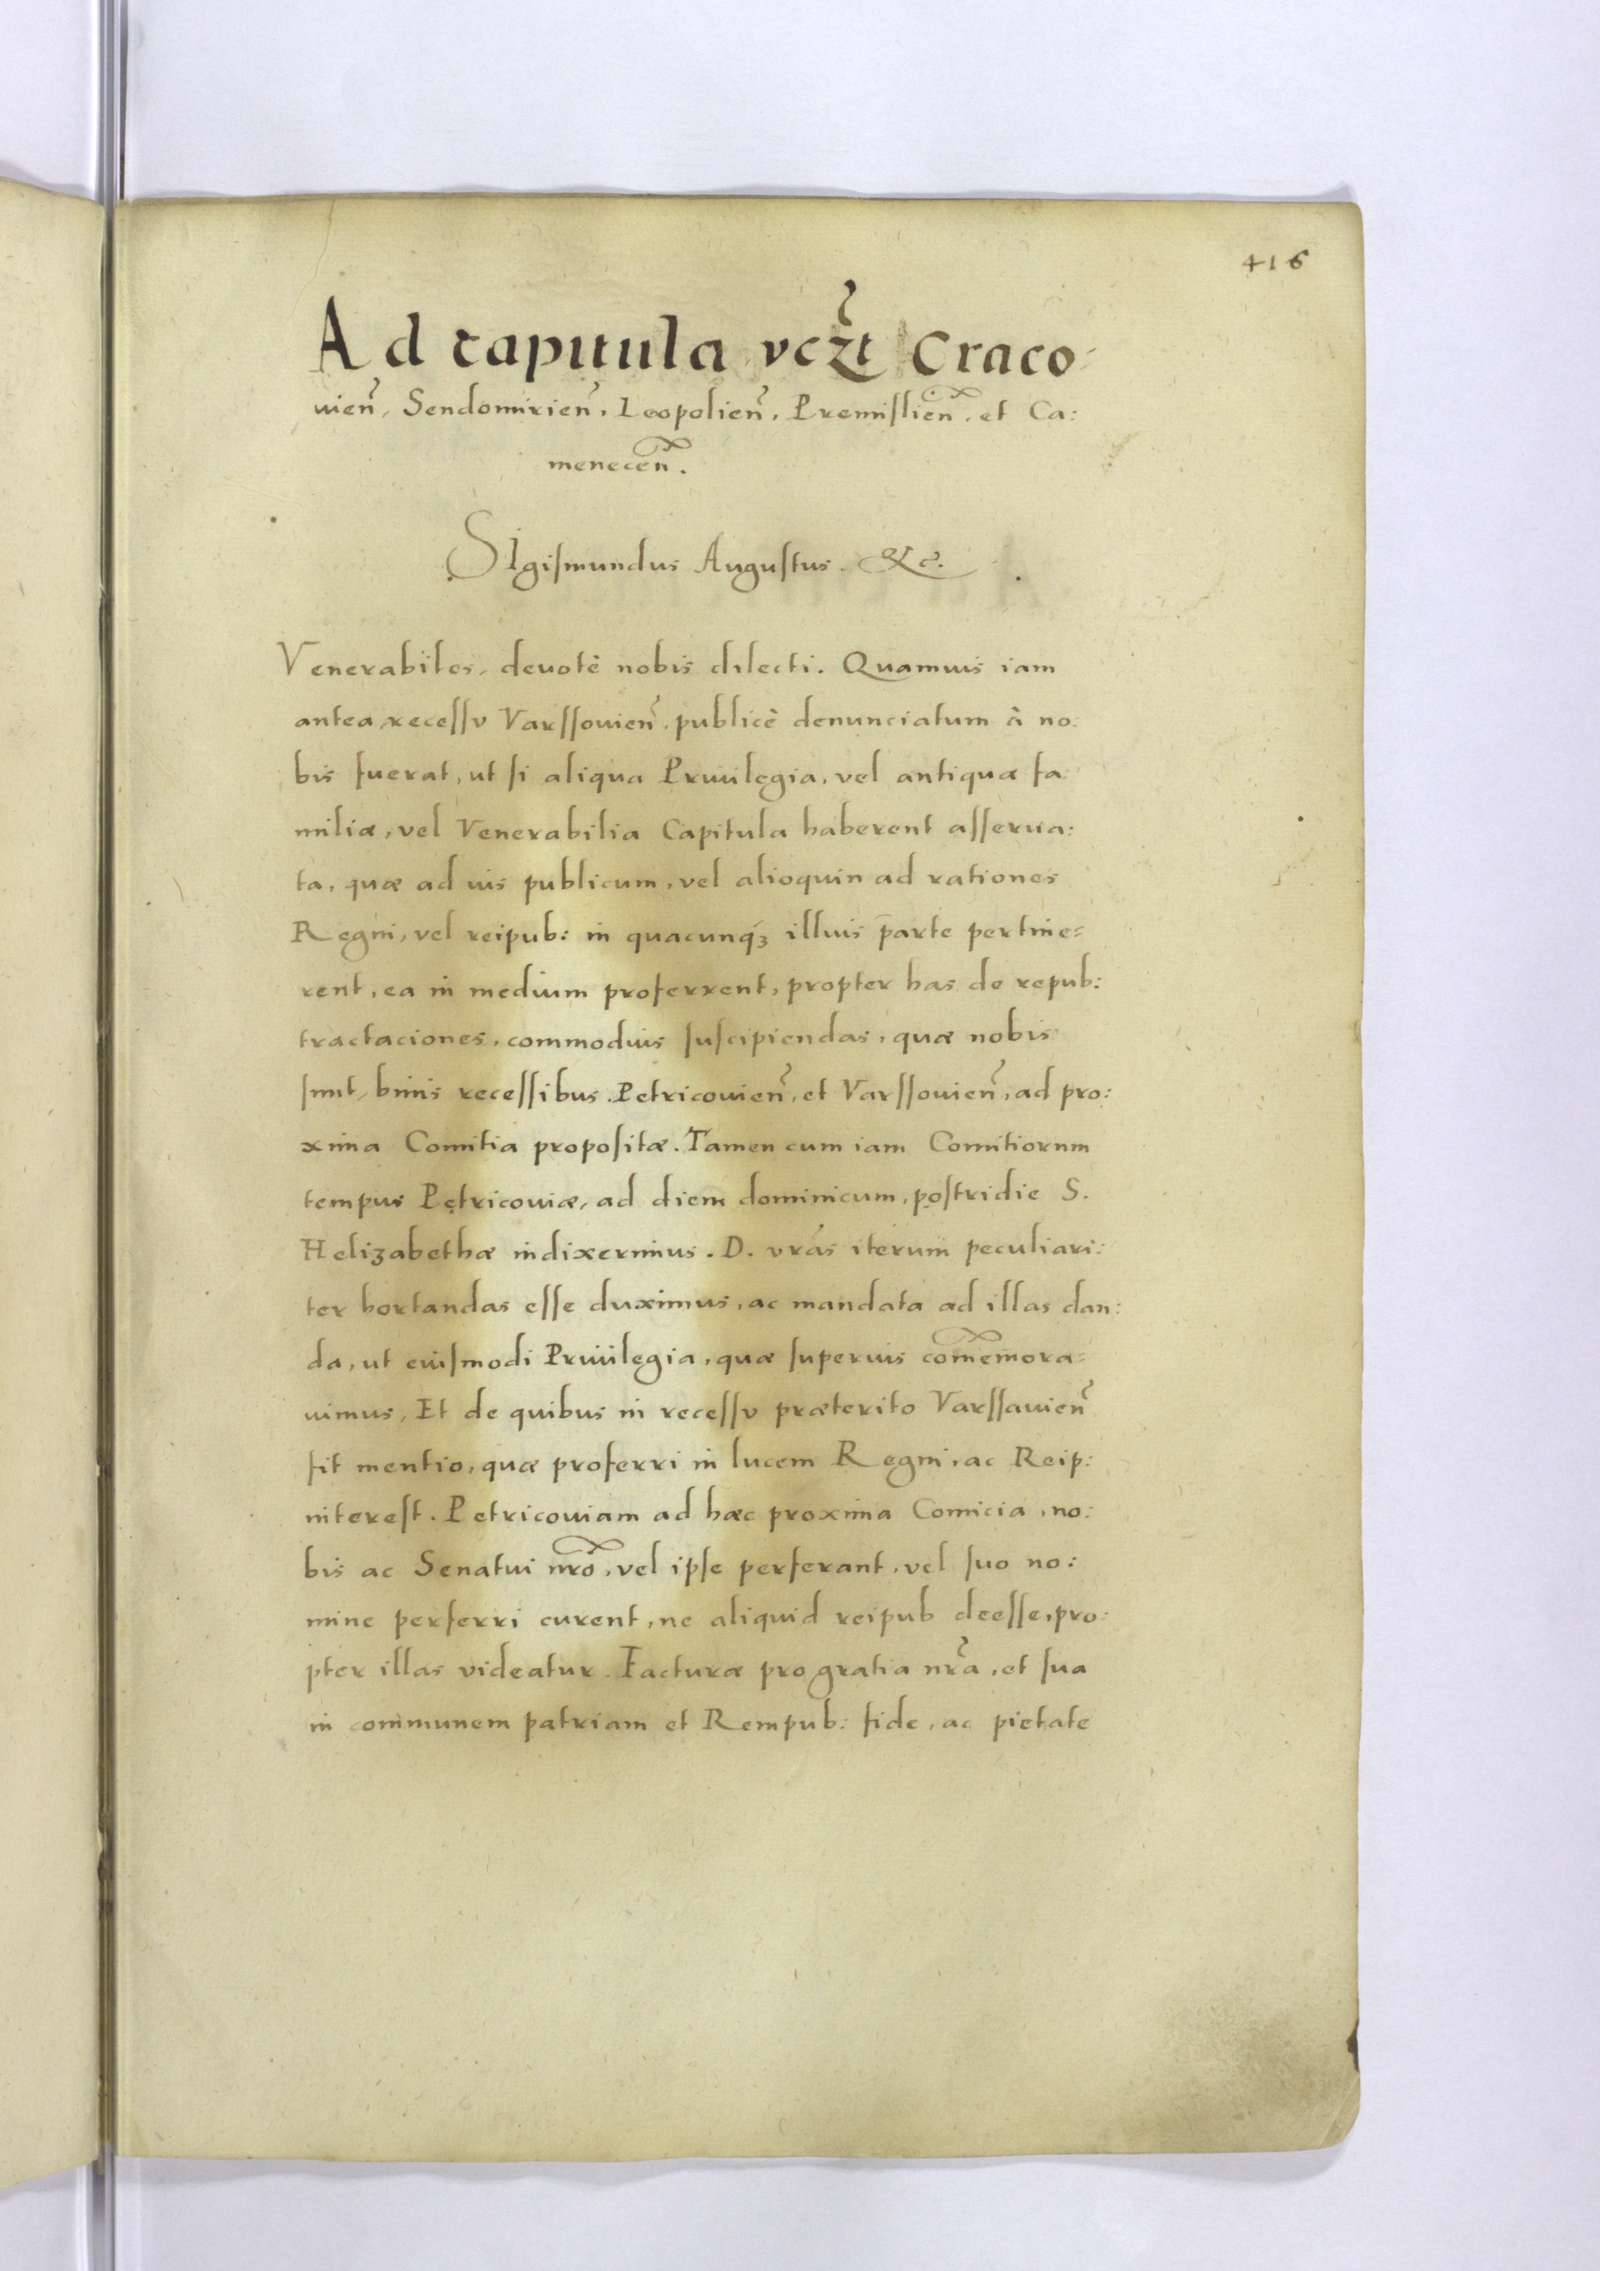 416
Ad capitula vczt Craco:
uien, Sendomirien, Leopolien, Premislien, et Ca:
menecen.
SIgismundus Augustus. &c.
Venerabiles, deuotè nobis dilecti. Quamuis iam
antea, recessu Varssouien, publicè denunciatum à no:
bis fuerat, ut si aliqua Priuilegia, vel antiquæ fa
miliæ, vel Venerabilia Capitula haberent asserua:
ta, quæ ad ius publicum, vel alioquin ad rationes
Regni, vel reipub: in quacunq3 illius parte pertine=
rent, ea in medium proferrent, propter has de repub:
tractaciones, commodius suscipiendas, quæ nobis
sunt, binis recessibus Petricouien, et Varssouien, ad pro:
xima Comitia propositæ. Tamen cum iam Comitiorum
tempus Petricouiæ, ad diem dominicum, postridie S.
Helizabethæ indixerimus. D. vras iterum peculiari:
ter hortandas esse duximus, ac mandata ad illas dan:
da, ut eiusmodi Priuilegia, quæ superius comemora=
uimus, Et de quibus in recessu præterito Varssauien
fit mentio, quæ proferri in lucem Regni, ac Reip:
interest. Petricouiam ad hæc proxima Comicia, no:
bis ac Senatui nro, vel ipse perferant, vel suo no:
mine perferri curent, ne aliquid reipub deesse, pro:
pter illas videatur. Facturæ pro gratia nra, et sua
in communem patriam et Rempub: fide, ac pietate